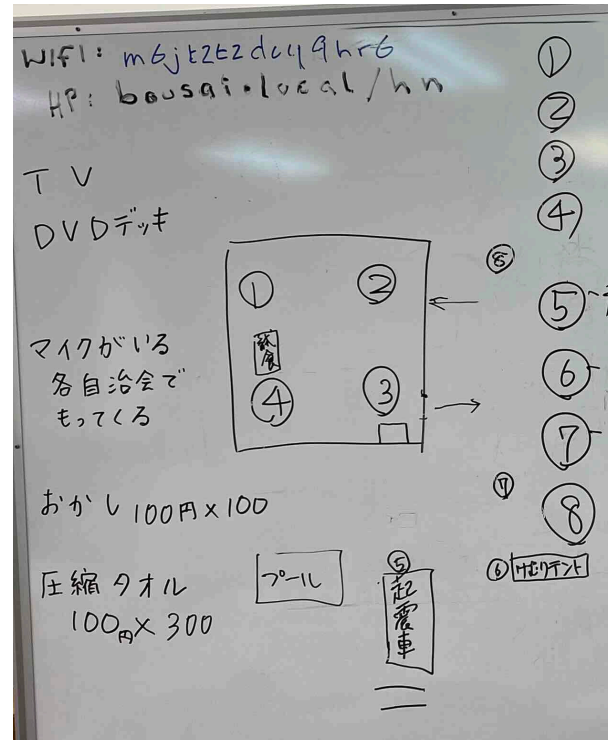 WIFI: m6jt2t2dcy9hr6
HP: bousai.local/hn
TV
DVDデッキ
マイクがいる
各自治会で
もってくる
おかし 100円×100
圧縮タオル
100円×300
① ②
試食
④ ③
⑧
プール
⑤
起震車
⑦
⑥ けむりテント
①
②
③
④
⑤
⑥
⑦
⑧